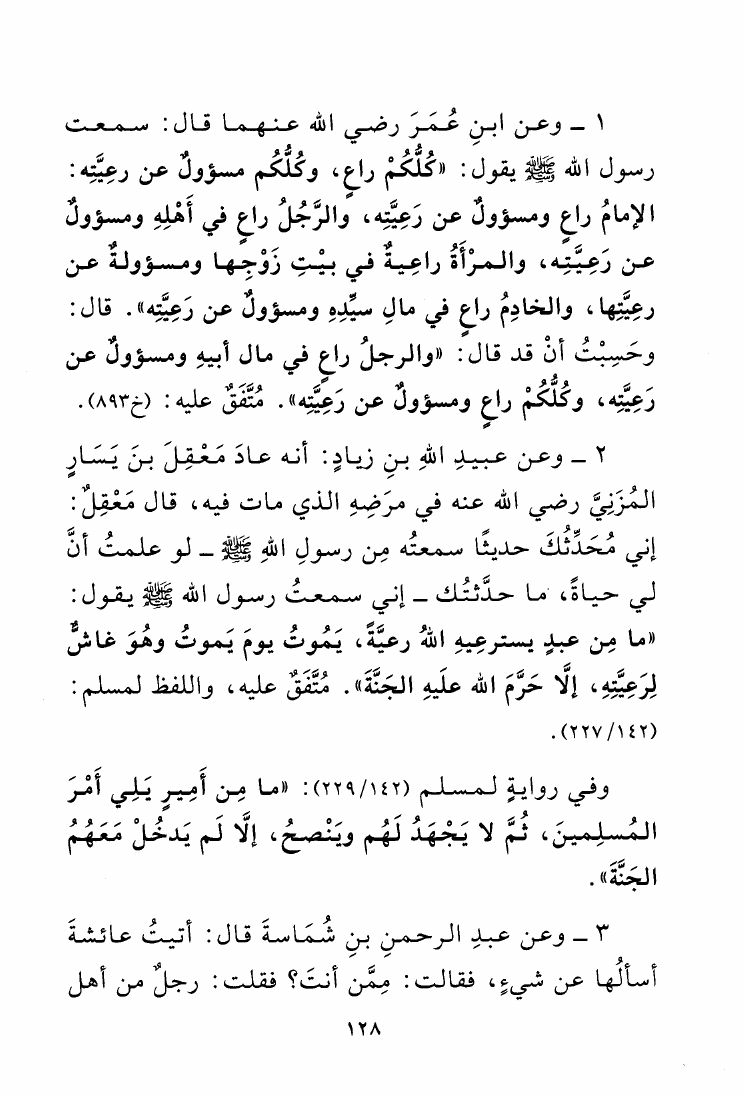 ١ ـ وعن ابنِ عُمَرَ رضي الله عنهما قال: سمعت
رسول الله ﷺ يقول: «كُلُّكُمْ راعٍ، وكُلُّكُم مسؤولٌ عن رعِيَّتِه:
الإمامُ راعٍ ومسؤولٌ عن رَعِيَّتِه، والرَّجُلُ راعٍ في أَهْلِهِ ومسؤولٌ
عن رَعِيَّتِه، والمرْأَةُ راعِيةٌ في بيْتِ زَوْجِها ومسؤولةٌ عن
رعِيَّتِها، والخادِمُ راعٍ في مالِ سيِّدِهِ ومسؤولٌ عن رَعِيَّتِه». قال:
وحَسِبْتُ أنْ قد قال: «والرجلُ راعٍ في مال أبيهِ ومسؤولٌ عن
رَعِيَّتِه، وكُلُّكُمْ راعٍ ومسؤولٌ عن رَعِيَّتِه». مُتَّفَقٌ عليه: (خ٨٩٣).
٢ ـ وعن عبيدِ اللهِ بنِ زيادٍ: أنه عادَ مَعْقِلَ بنَ يَسَارٍ
المُزَنِيَّ رضي الله عنه في مرَضِهِ الذي مات فيه، قال مَعْقِلٌ:
إني مُحَدِّثُكَ حديثًا سمعتُه مِن رسولِ اللهِ ﷺ ـ لو علمتُ أنَّ
لي حياةً، ما حدَّثتُك ـ إني سمعتُ رسول الله ﷺ يقول:
«ما مِن عبدٍ يسترعِيهِ اللهُ رعيَّةً، يَمُوتُ يومَ يَموتُ وهُوَ غاشٌّ
لِرَعِيَّتِهِ، إلَّا حَرَّمَ الله علَيهِ الجَنَّةَ». مُتَّفَقٌ عليه، واللفظ لمسلم:
(٢٢٧/١٤٢).
وفي روايةٍ لمسلم (٢٢٩/١٤٢): «ما مِن أَمِيرٍ يَلِي أَمْرَ
المُسلِمينَ، ثُمَّ لا يَجْهَدُ لَهُم ويَنْصحُ، إلَّا لَم يَدخُلْ مَعَهُمُ
الجَنَّةَ».
٣ ـ وعن عبدِ الرحمنِ بنِ شُمَاسةَ قال: أتيتُ عائشةَ
أسألُها عن شيءٍ، فقالت: مِمَّن أنتَ؟ فقلت: رجلٌ من أهل
١٢٨